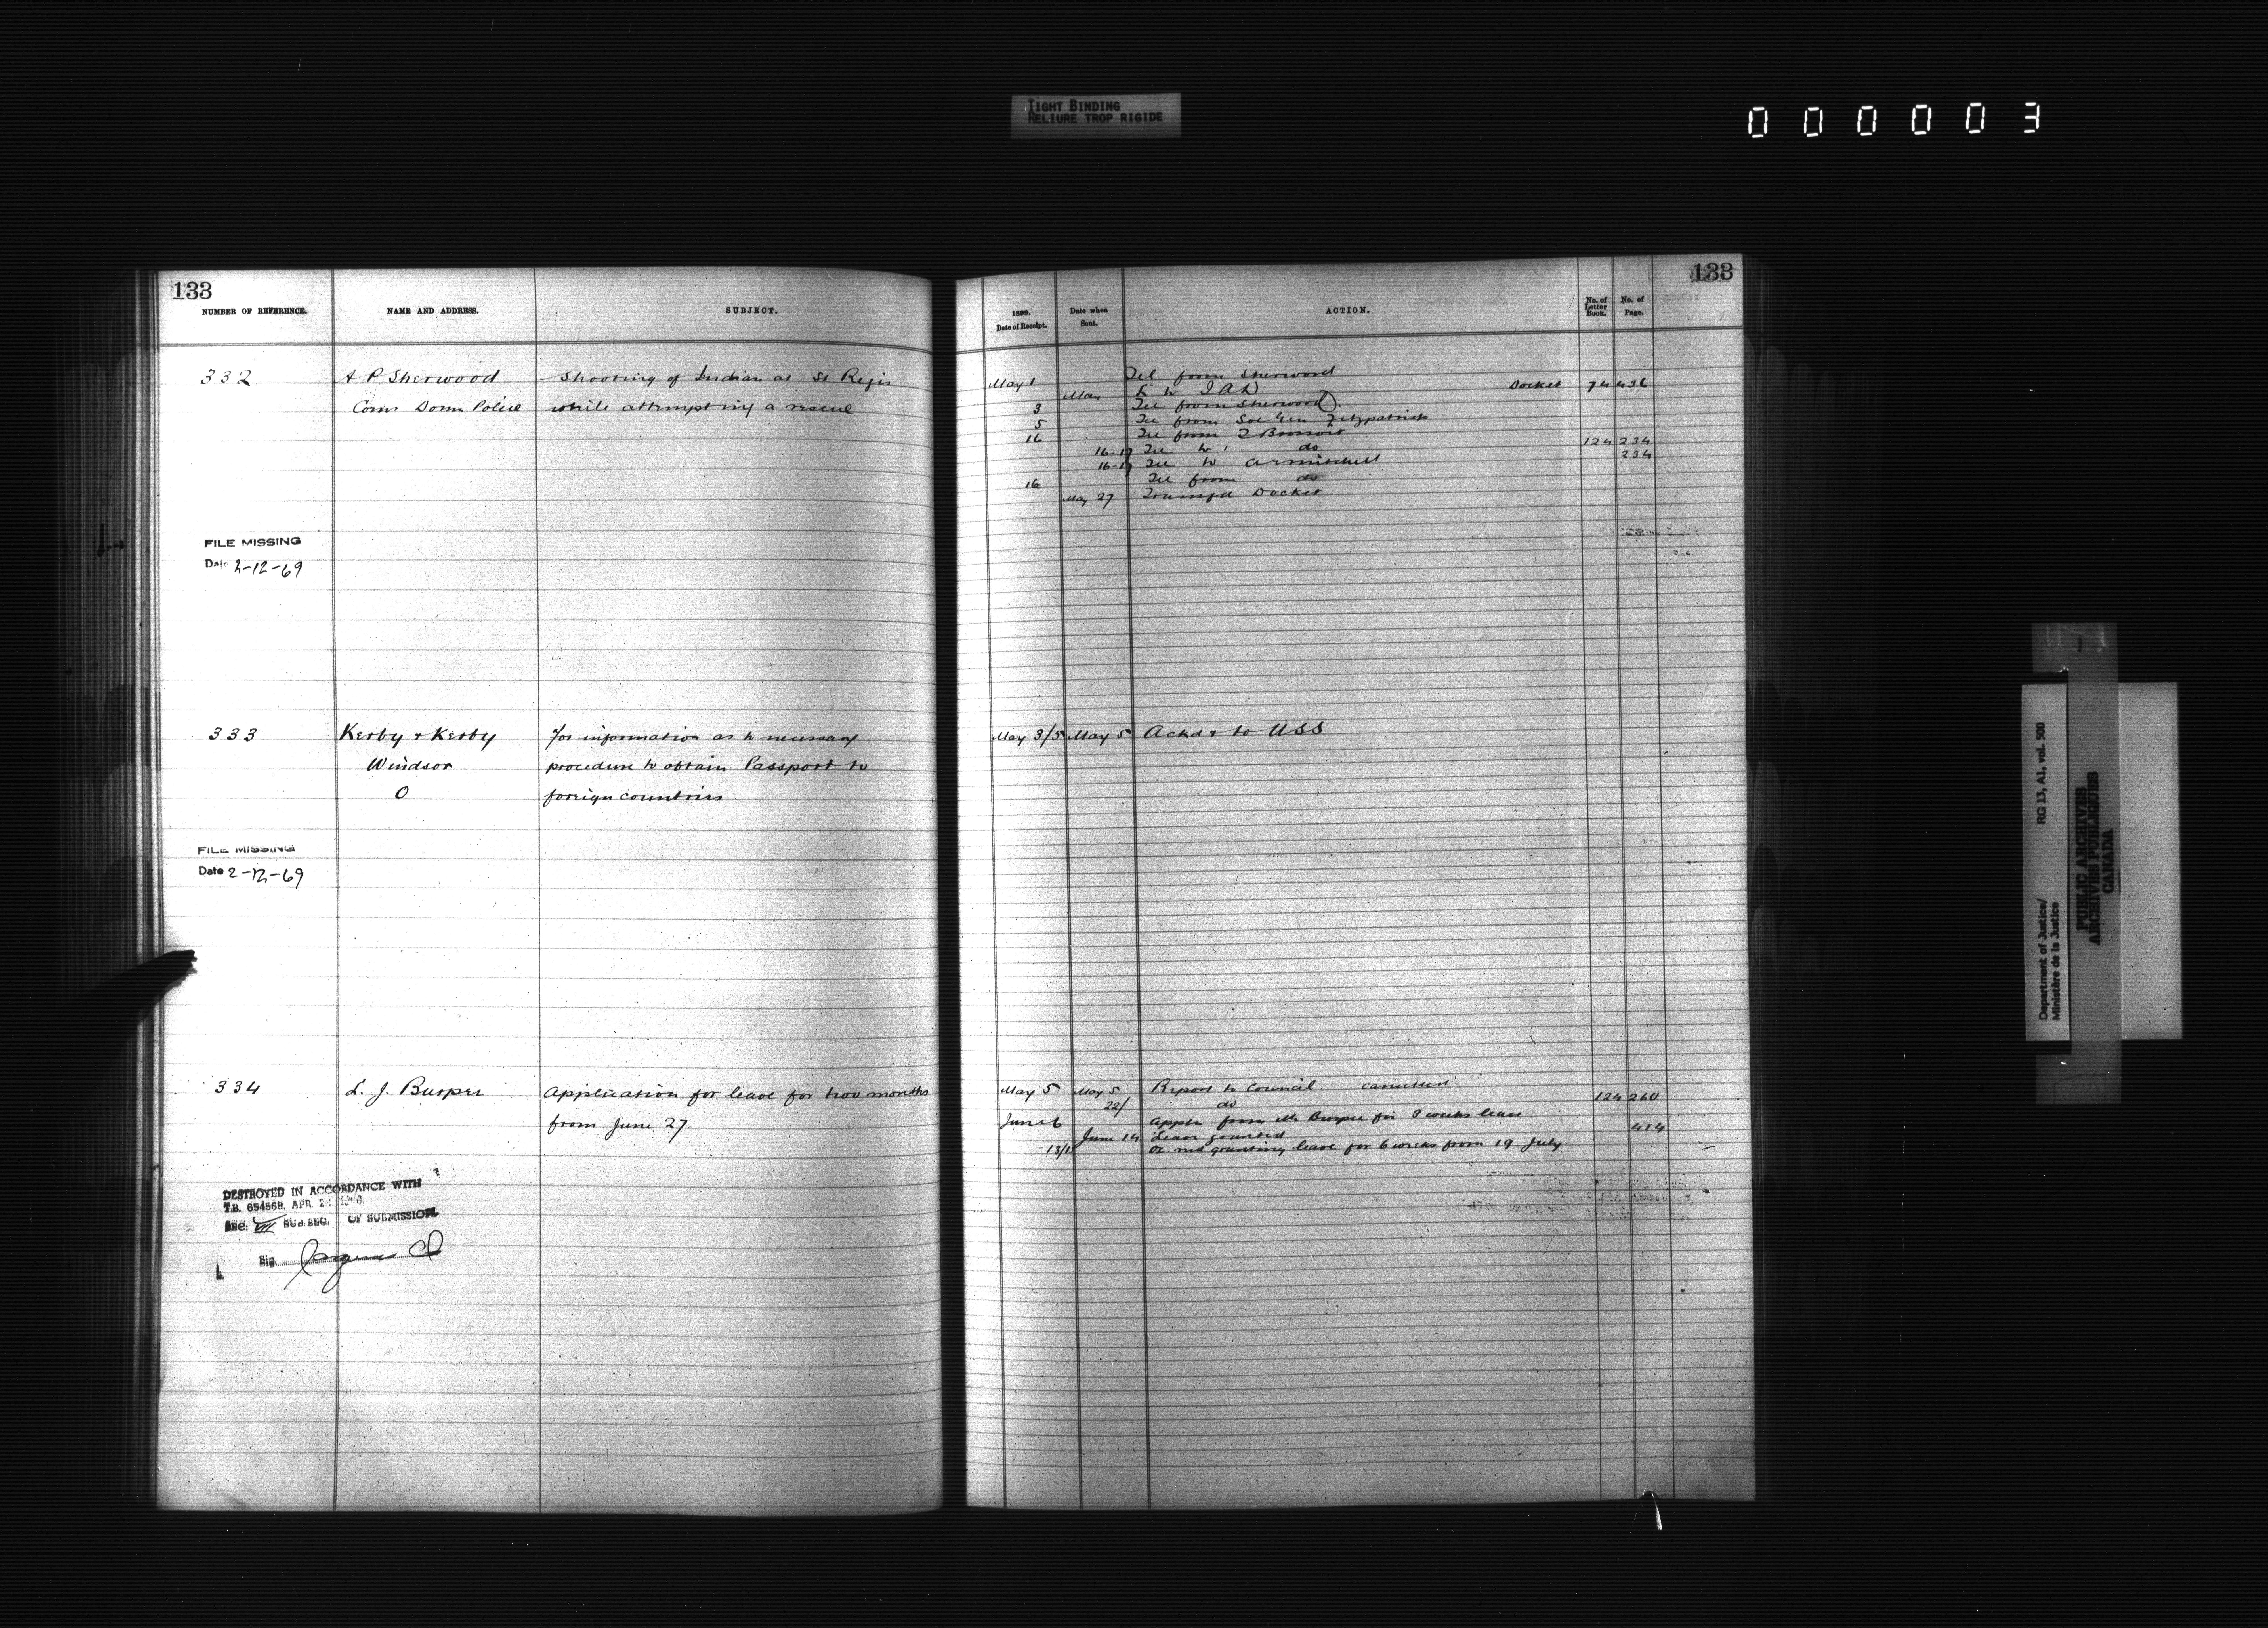 TIGHT BINDING
RELIURE TROP RIGIDE
000003
133
NUMBER OF REFERENCE.
NAME AND ADDRESS.
SUBJECT.
332
A P Sherwood
Shooting of Indian at St Regis
Comr Domn Police
while attempting a rescue
FILE MISSING
Date 2-12-69
333
Kerby & Kerby
for information as to necessary
Windsor
procedure to obtain Passport to
O
foreign countries
FILE MISSING
Date 2-12-69
334
L. J. Burpee
Application for leave for two months
from June 27
DESTROYED IN ACCORDANCE WITH
T.B. 654568. APR 2
SEC. VII SUB.SEC. OF SUBMISSION.
Sig.
133
1899.
Date of Receipt.
Date when
Sent.
ACTION.
No. of
Letter
Book.
No. of
Page.
May 1
Tel from Sherwood
May
L to I A D
Docket
74 436
3
Tel from Sherwood
5
Tel from Sol Gen Fitzpatrick
16
Tel from
16-17
Tel to do
124 234
16-17
Tel to
234
16
Tel from do
May 27
Transfd Docket
May 3/5
May 5
Ackd & to USS
May 5
May 5
Report to Council cancelled
22/
do
124 260
June 6
Appln from Mr Burpee for 3 weeks leave
June 14
Leave granted
414
13/15
OC recd granting leave for 6 weeks from 19 July
Department of Justice/
Ministère de la Justice
RG 13, A1, vol. 500
PUBLIC ARCHIVES
ARCHIVES PUBLIQUES
CANADA